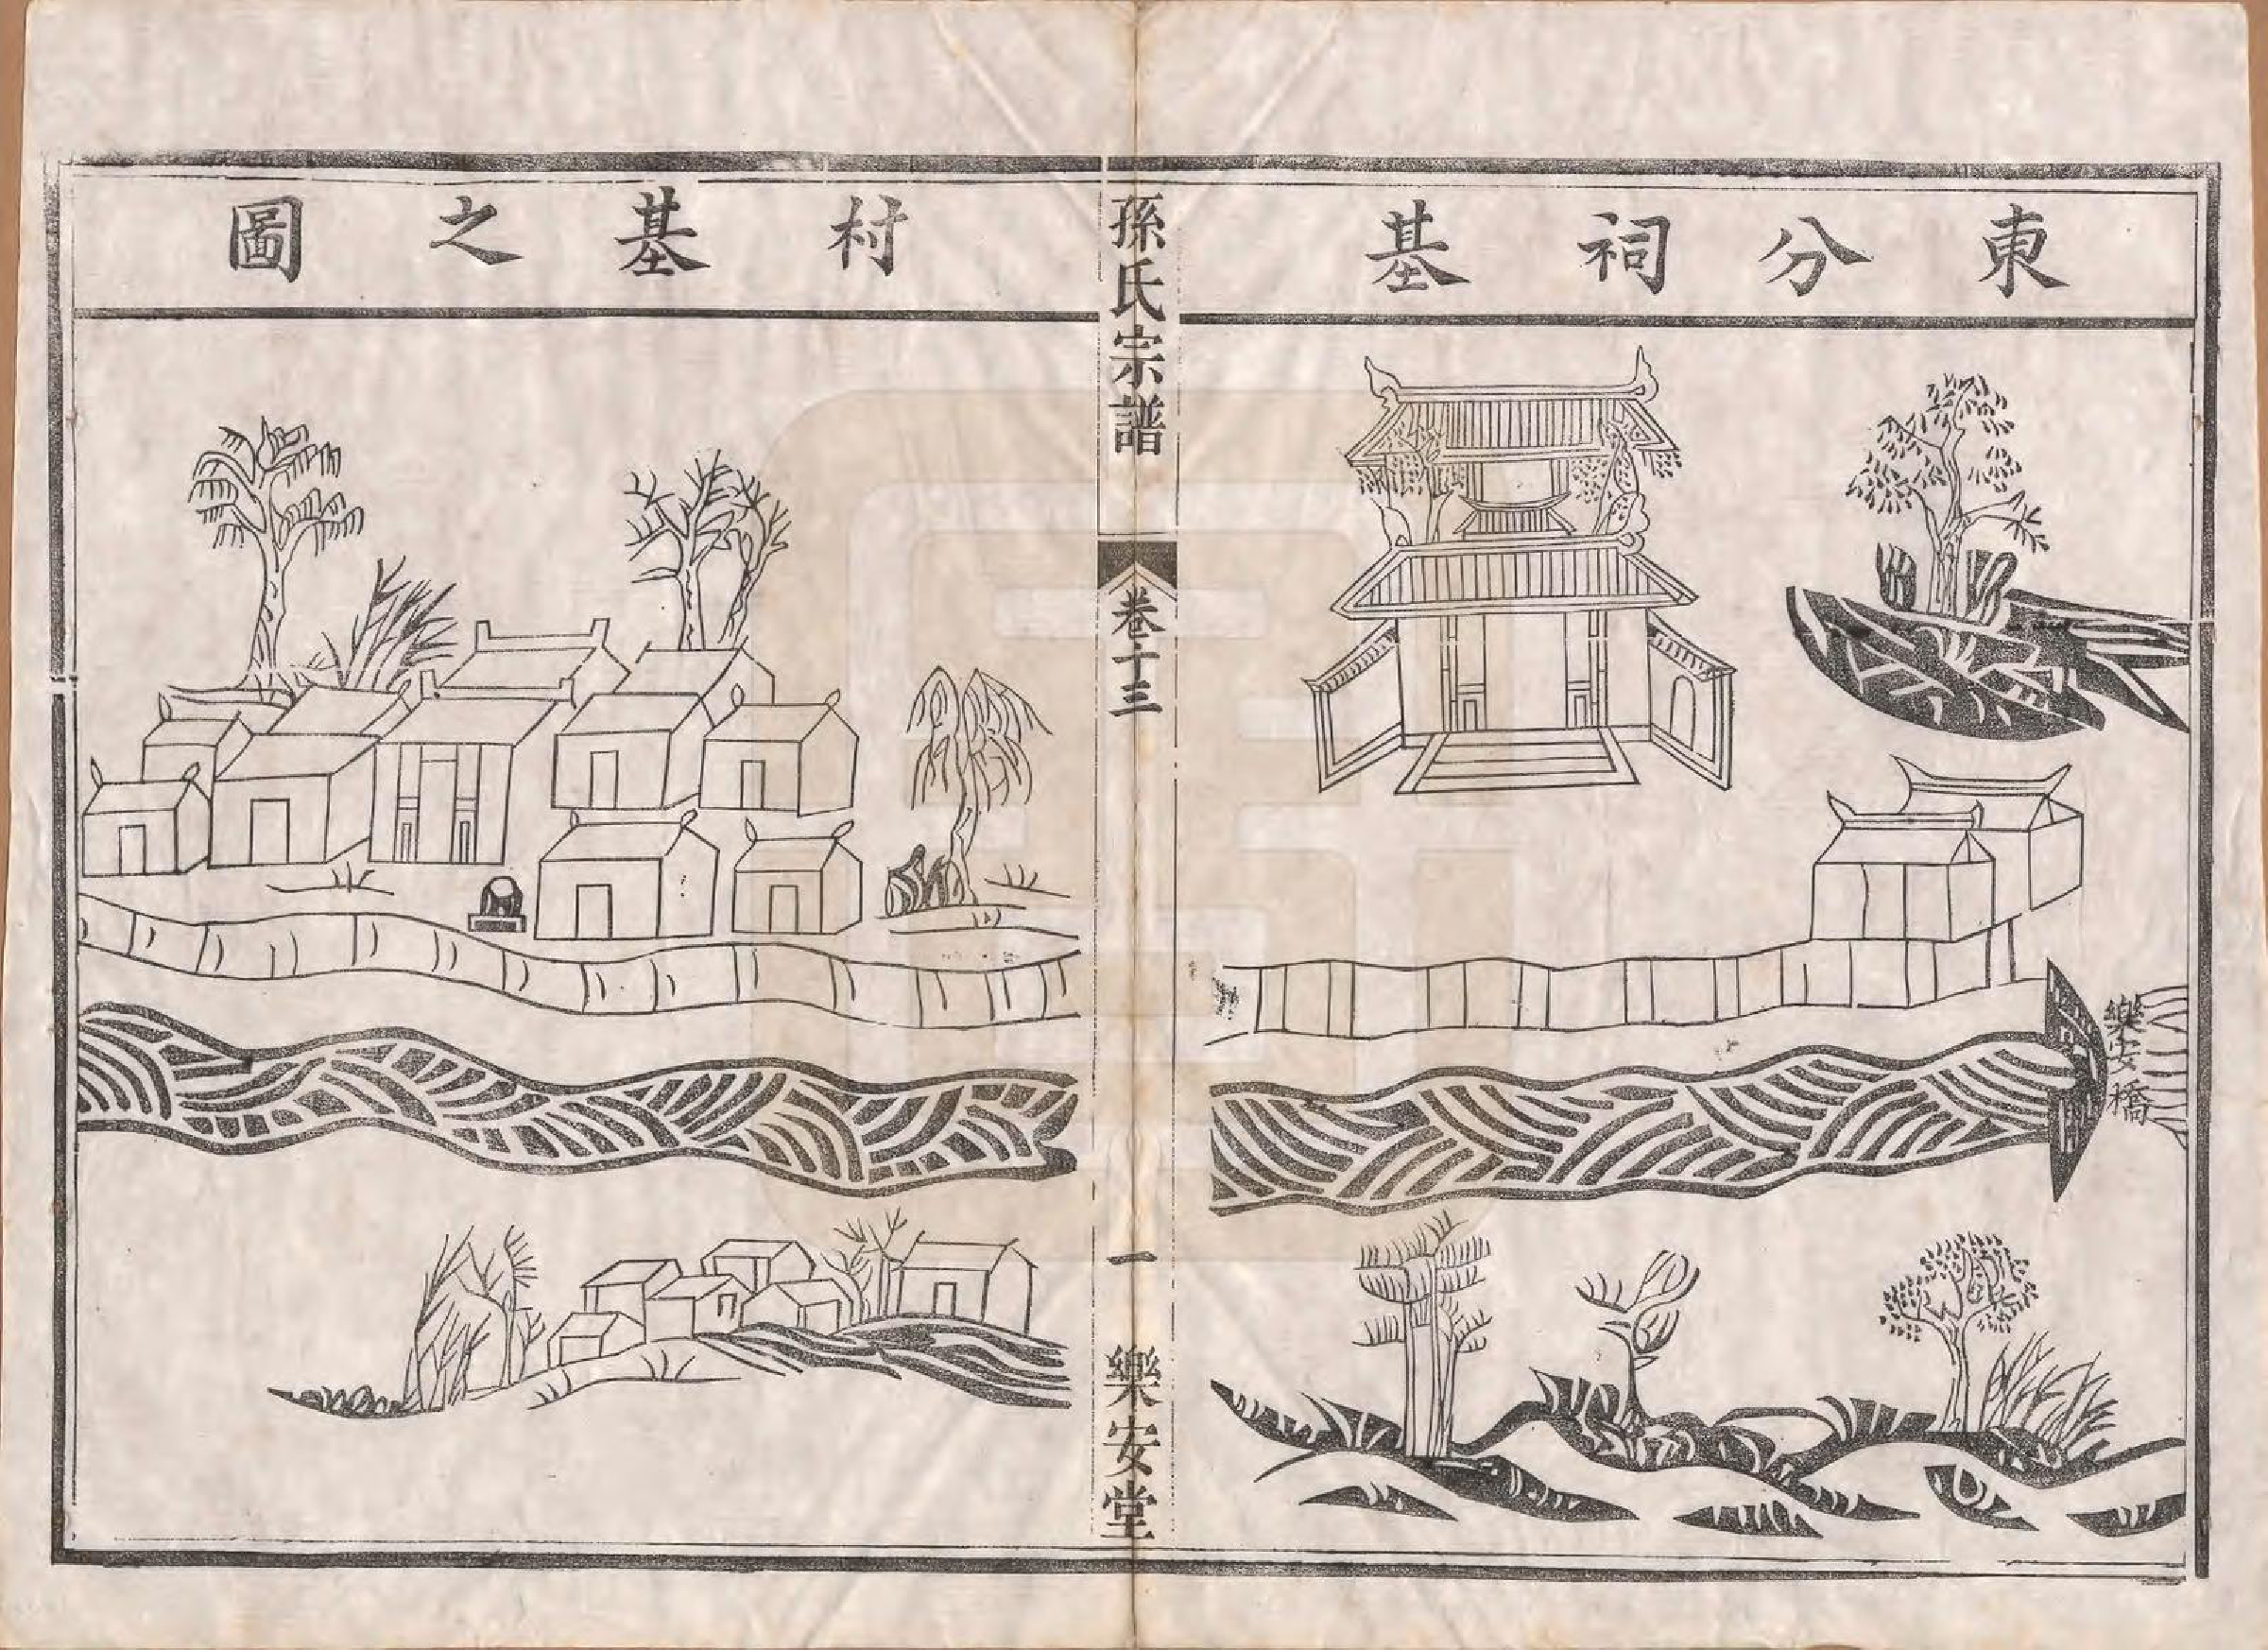 東分祠基
樂安橋
孫氏宗譜
卷十三
一
樂安堂
村基之圖